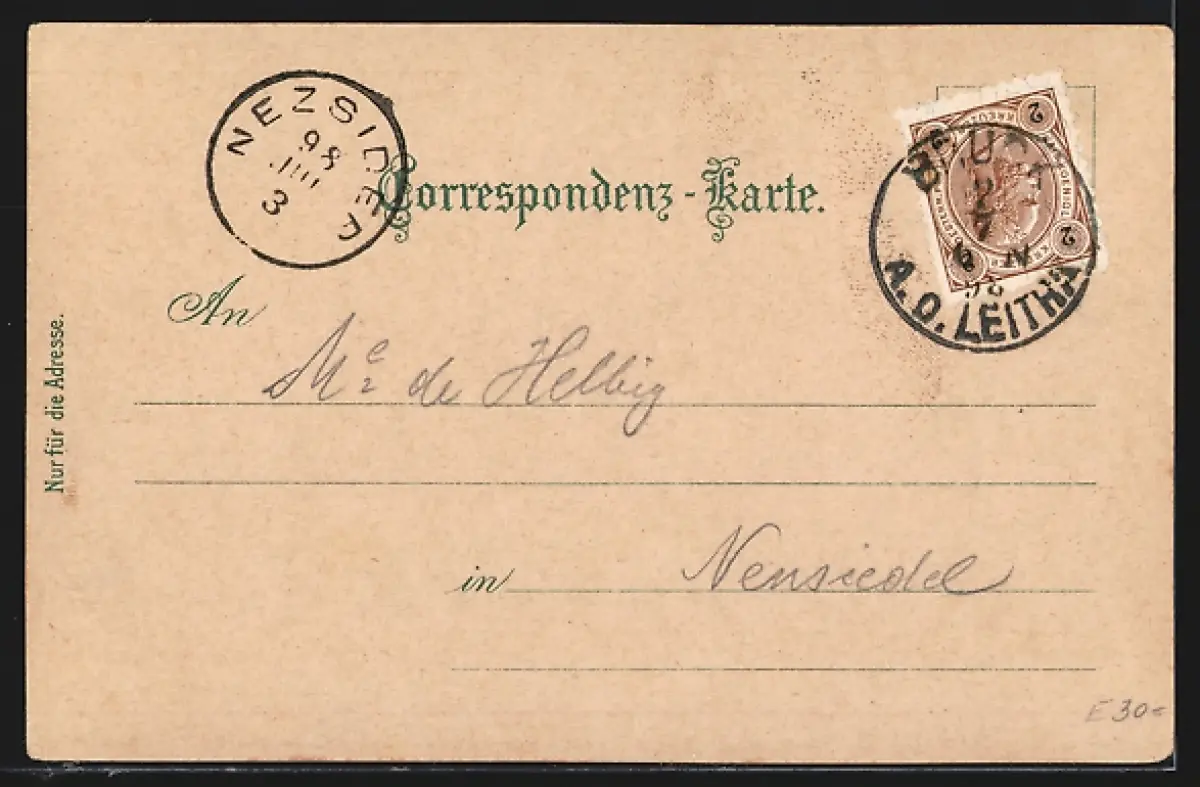 NEZSIDER
98
III
3
Correspondenz-Karte.
2
2
BRUCK
A. D. LEITHA
98
An
Nur für die Adresse.
Mce de Helbig
in Neusiedel
E 30